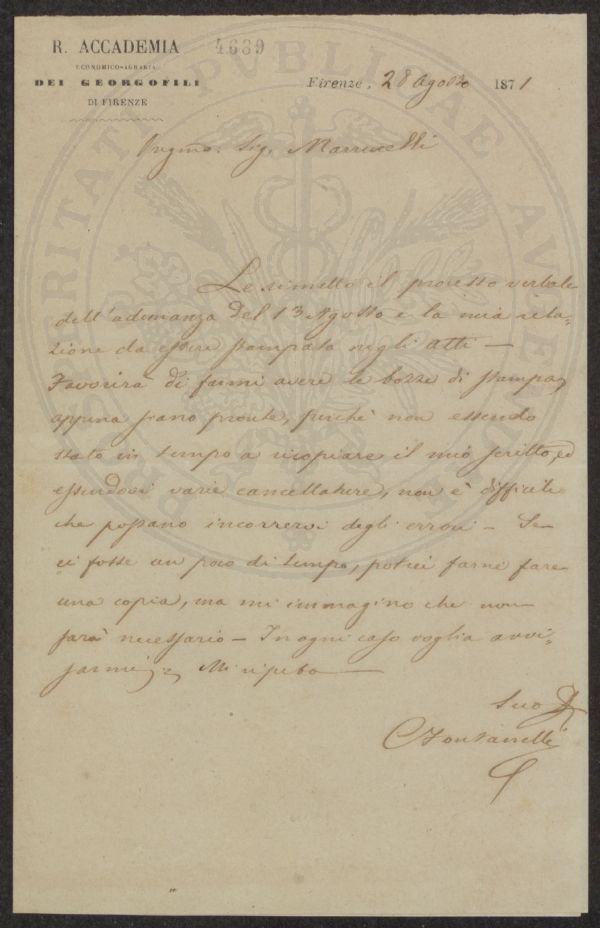 R. ACCADEMIA
ECONOMICO-AGRARIA
DEI GEORGOFILI
DI FIRENZE
4639
Firenze, 28 Agosto 1871
Pregmo: Sig. Marruselli
Le rimetto il processo verbale
dell'adunanza del 13 Agosto e la mia rela-
zione da essere stampata negli Atti —
Favorirà di farmi avere le bozze di stampa,
appena siano pronte, perchè non essendo
stato in tempo a ricopiare il mio scritto, ed
essendovi varie cancellature, non è difficile
che possano incorrervi degli errori — Se
ci fosse un poco di tempo, potrei farne fare
una copia, ma mi immagino che non
sarà necessario — In ogni caso voglia avvi-
sarmi; Mi ripeto —
Suo
C Fontanelli
PROSPERITATI PVBLICAE AVGENDAE